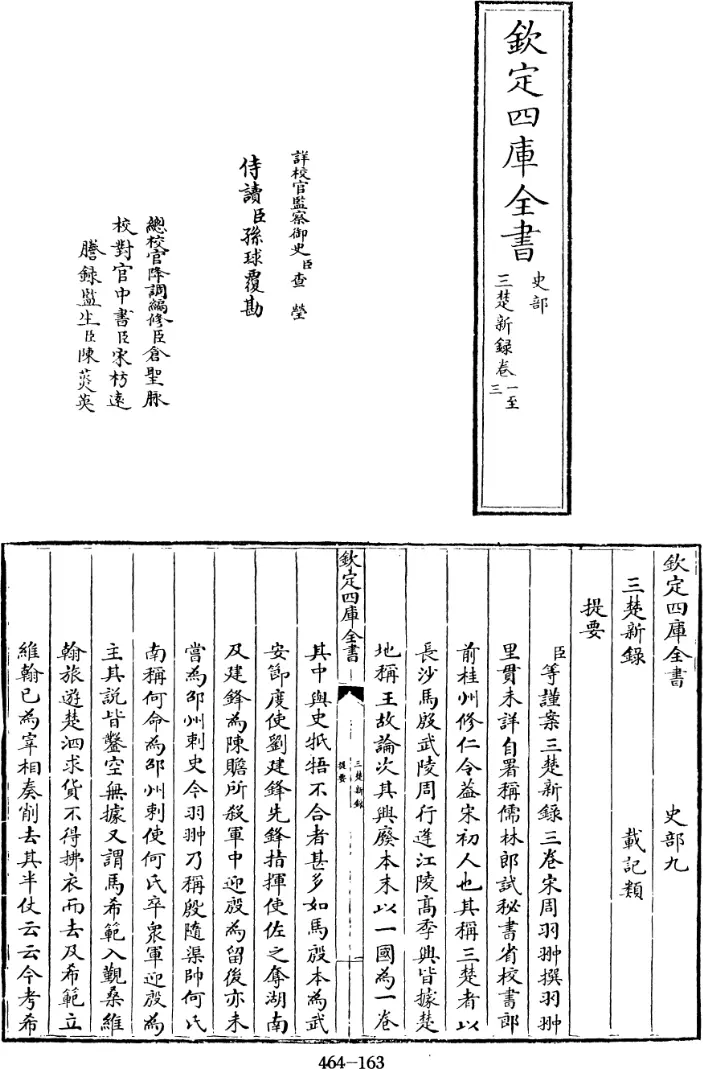 欽定四庫全書
史部
三楚新録卷一至三
詳校官監察御史臣查瑩
侍讀臣孫球覆勘
總校官降調編修臣倉聖脉
校對官中書臣宋枋遠
謄録監生臣陳炎英
欽定四庫全書
史部九
三楚新録
載記類
提要
臣等謹案三楚新録三卷宋周羽翀撰羽翀
里貫未詳自署稱儒林郎試秘書省校書郎
前桂州修仁令益宋初人也其稱三楚者以
長沙馬殷武陵周行逢江陵高季興皆據楚
地稱王故論次其興廢本末以一國為一卷
欽定四庫全書
三楚新録
提要
其中與史牴牾不合者甚多如馬殷本為武
安節度使劉建鋒先鋒指揮使佐之奪湖南
及建鋒為陳贍所殺軍中迎殷為留後亦未
嘗為邵州刺史今羽翀乃稱殷隨渠帥何氏
南稱何命為邵州刺使何氏卒衆軍迎殷為
主其說皆鑿空無據又謂馬希範入覲桑維
翰旅遊楚泗求貨不得拂衣而去及希範立
維翰已為宰相奏削去其半仗云云今考希
464-163